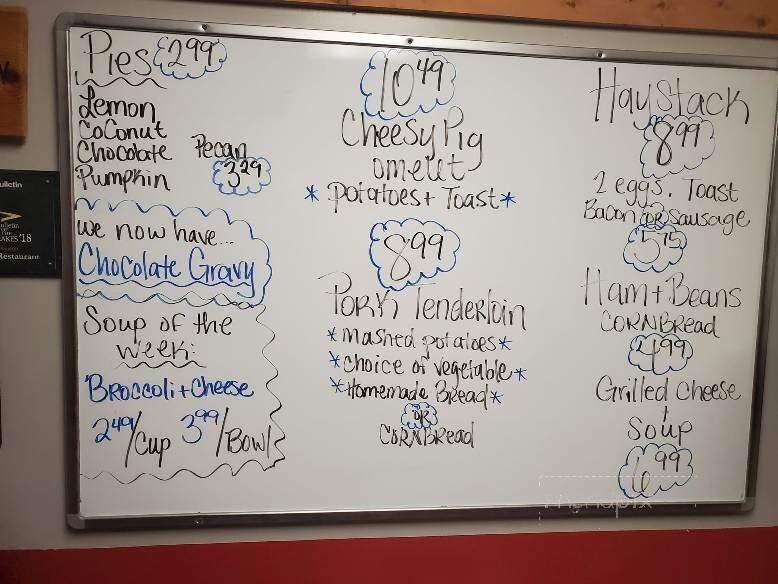 Pies 2.99
Lemon
Coconut
Chocolate Pecan
Pumpkin 3.29
We now have...
Chocolate Gravy
Soup of the
Week:
Broccoli + Cheese
2.49/Cup 3.99/Bowl
10.49
Cheesy Pig
omelet
* Potatoes + Toast *
8.99
Pork Tenderloin
* Mashed potatoes *
* Choice of Vegetable *
* Homemade Bread *
OR
CORNBRead
Haystack
8.99
2 eggs, Toast
Bacon OR Sausage
5.75
Ham + Beans
CORNBRead
4.99
Grilled Cheese
+
Soup
6.99
ulletin
AKES '18
Restaurant